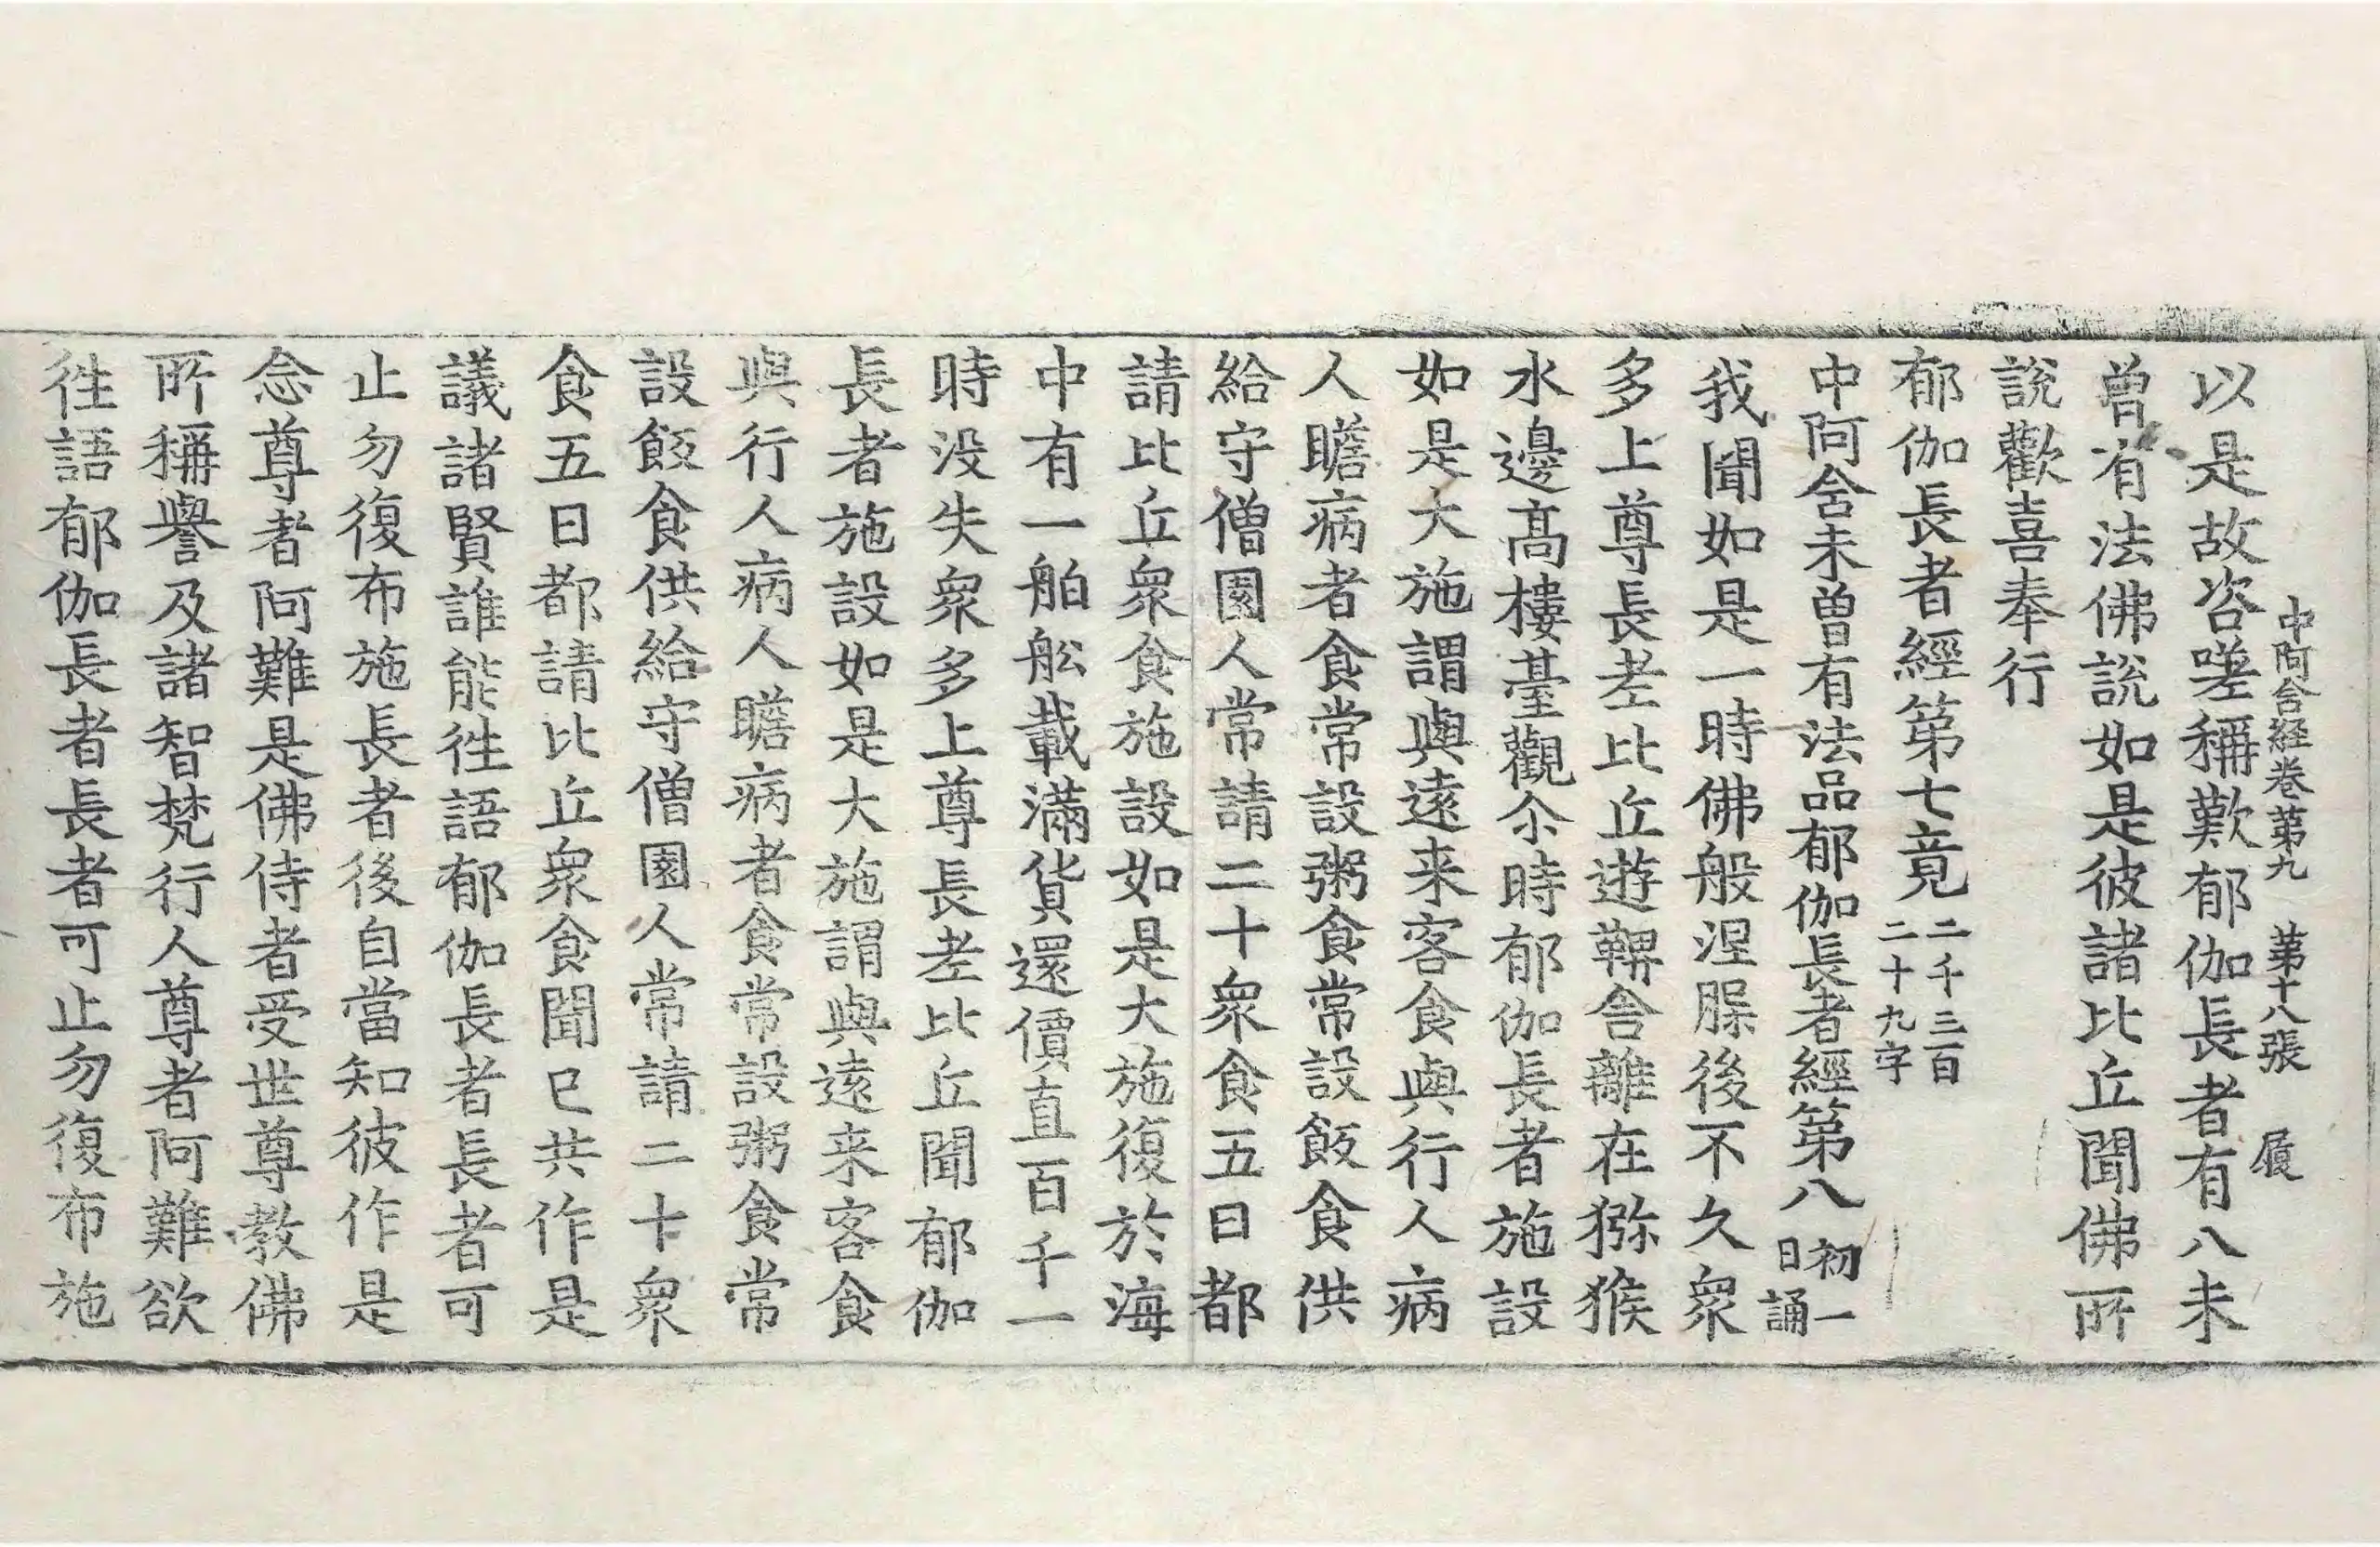 中阿含経卷第九　第十八張　履
以是故咨嗟稱歎郁伽長者有八未
曾有法佛說如是彼諸比丘聞佛所
說歡喜奉行
郁伽長者經第七竟二千三百二十九字
中阿含未曾有法品郁伽長者經第八初一日誦
我聞如是一時佛般涅槃後不久衆
多上尊長老比丘遊鞞舍離在獼猴
水邊高樓臺觀尒時郁伽長者施設
如是大施謂與遠来客食與行人病
人瞻病者食常設粥食常設飯食供
給守僧園人常請二十衆食五日都
請比丘衆食施設如是大施復於海
中有一舶舩載滿貨還價直百千一
時没失衆多上尊長老比丘聞郁伽
長者施設如是大施謂與遠来客食
與行人病人瞻病者食常設粥食常
設飯食供給守僧園人常請二十衆
食五日都請比丘衆食聞已共作是
議諸賢誰能往語郁伽長者長者可
止勿復布施長者後自當知彼作是
念尊者阿難是佛侍者受世尊教佛
所稱譽及諸智梵行人尊者阿難欲
往語郁伽長者長者可止勿復布施